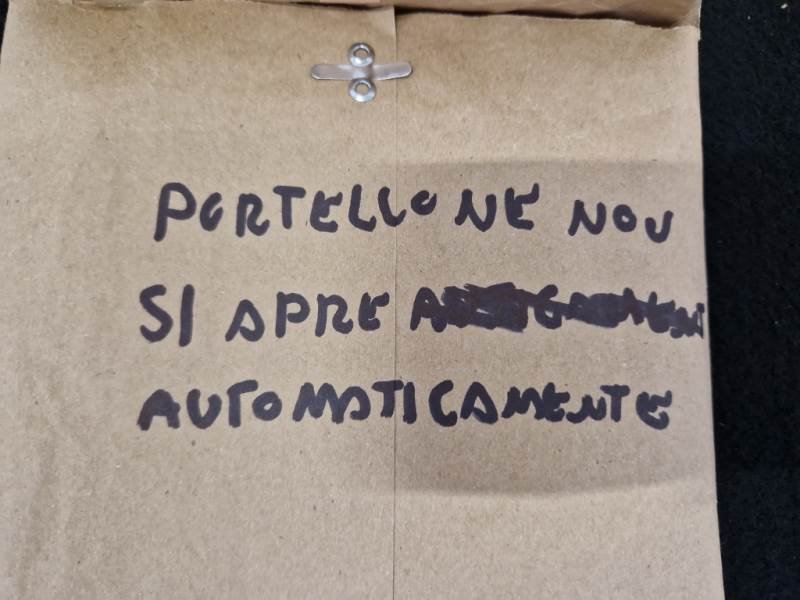 PORTELLONE NON
SI APRE
AUTOMATICAMENTE